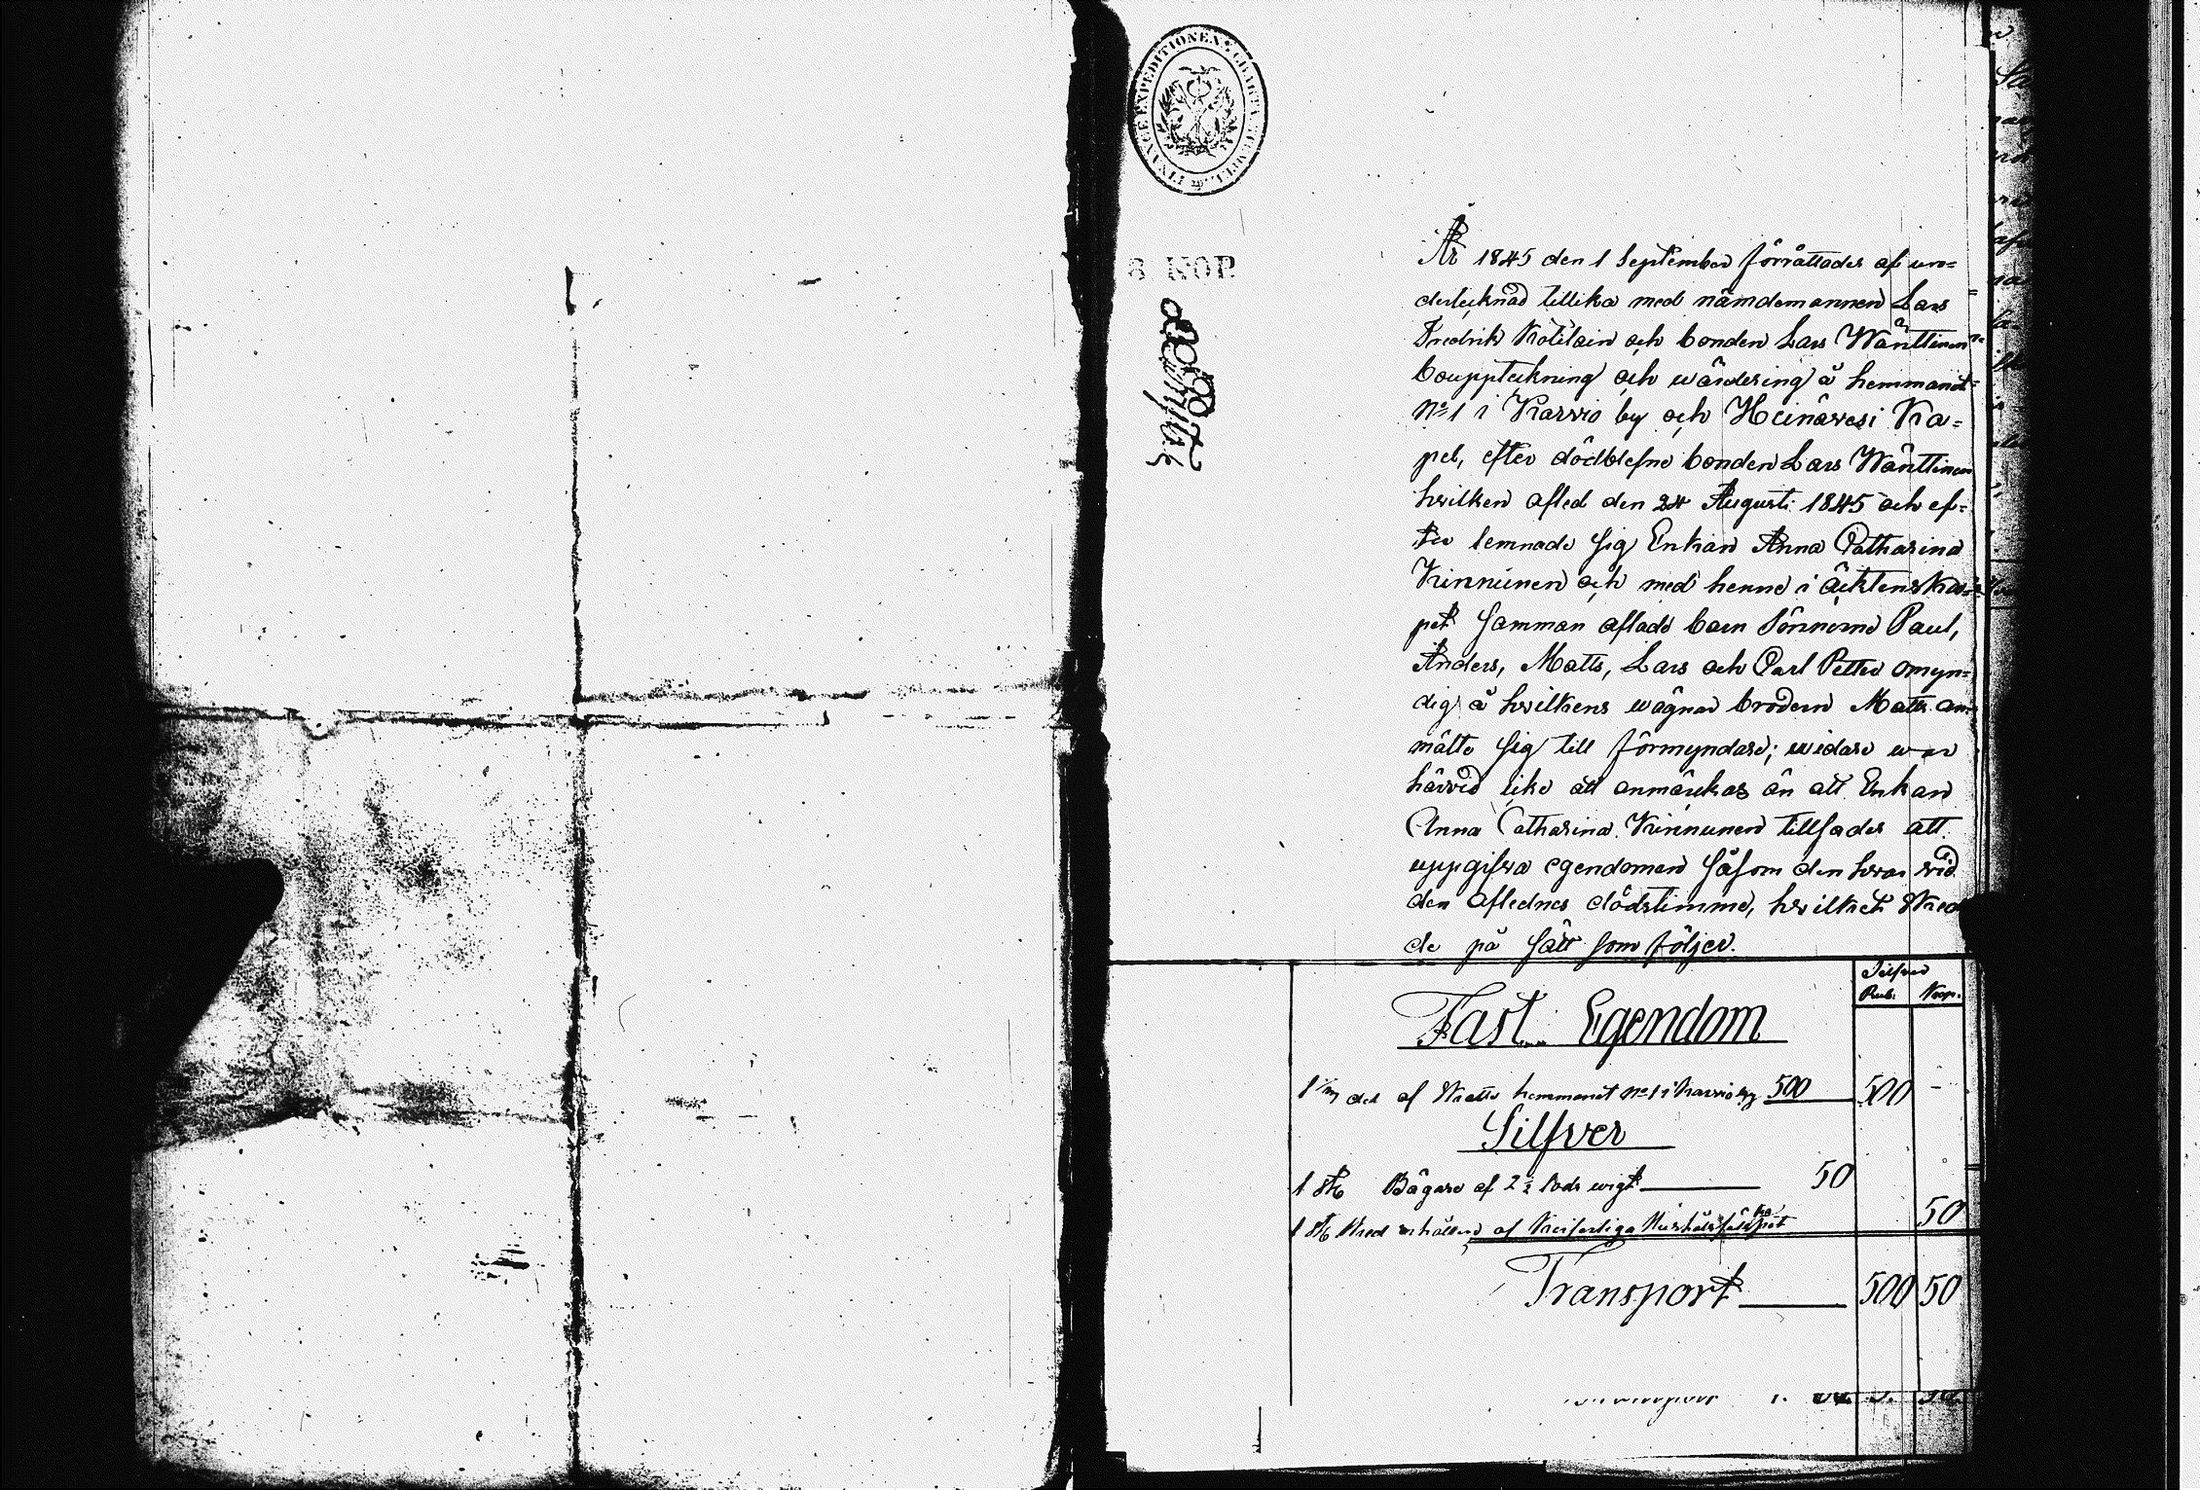 FINANCE EXPEDITIONENS CHARTA
8 KOP.
År 1845 den 1 September förrättades af un=
dertecknad tillika med nämdemannen Lars
Fredrik Kotilain och bonden Lars Wänttinen
bouppteckning och wärdering å hemmanet
No 1 i Karvio by och Heinävesi Ka=
pel, efter dödblefne bonden Lars Wänttinen
hvilken afled den 24 Augusti 1845 och ef=
ter lemnade sig Enkan Anna Catharina
Kinnunen och med henne i äcktenska=
pet samman aflade barn Sönnerne Paul,
Anders, Matts, Lars och Carl Petter omyn=
dig å hvilkens wägnar brodern Matts an=
mälte sig till förmyndare; widare war
härvid icke att anmärckas än att Enkan
Anna Catharina Kinnunen tillsades att
uppgifva egendomen såsom den hvar vid
den aflednes dödstimme, hvilket sked
de på sätt som följer.
Silfver
Rub. Kop.
Fast Egendom
del af Skatte hemmanet No 1 i Karvio by 500 500 -
Silfver
1 st Bägare af 2 1/2 lods wigt 50
1 st Sked 50
Transport 500 50